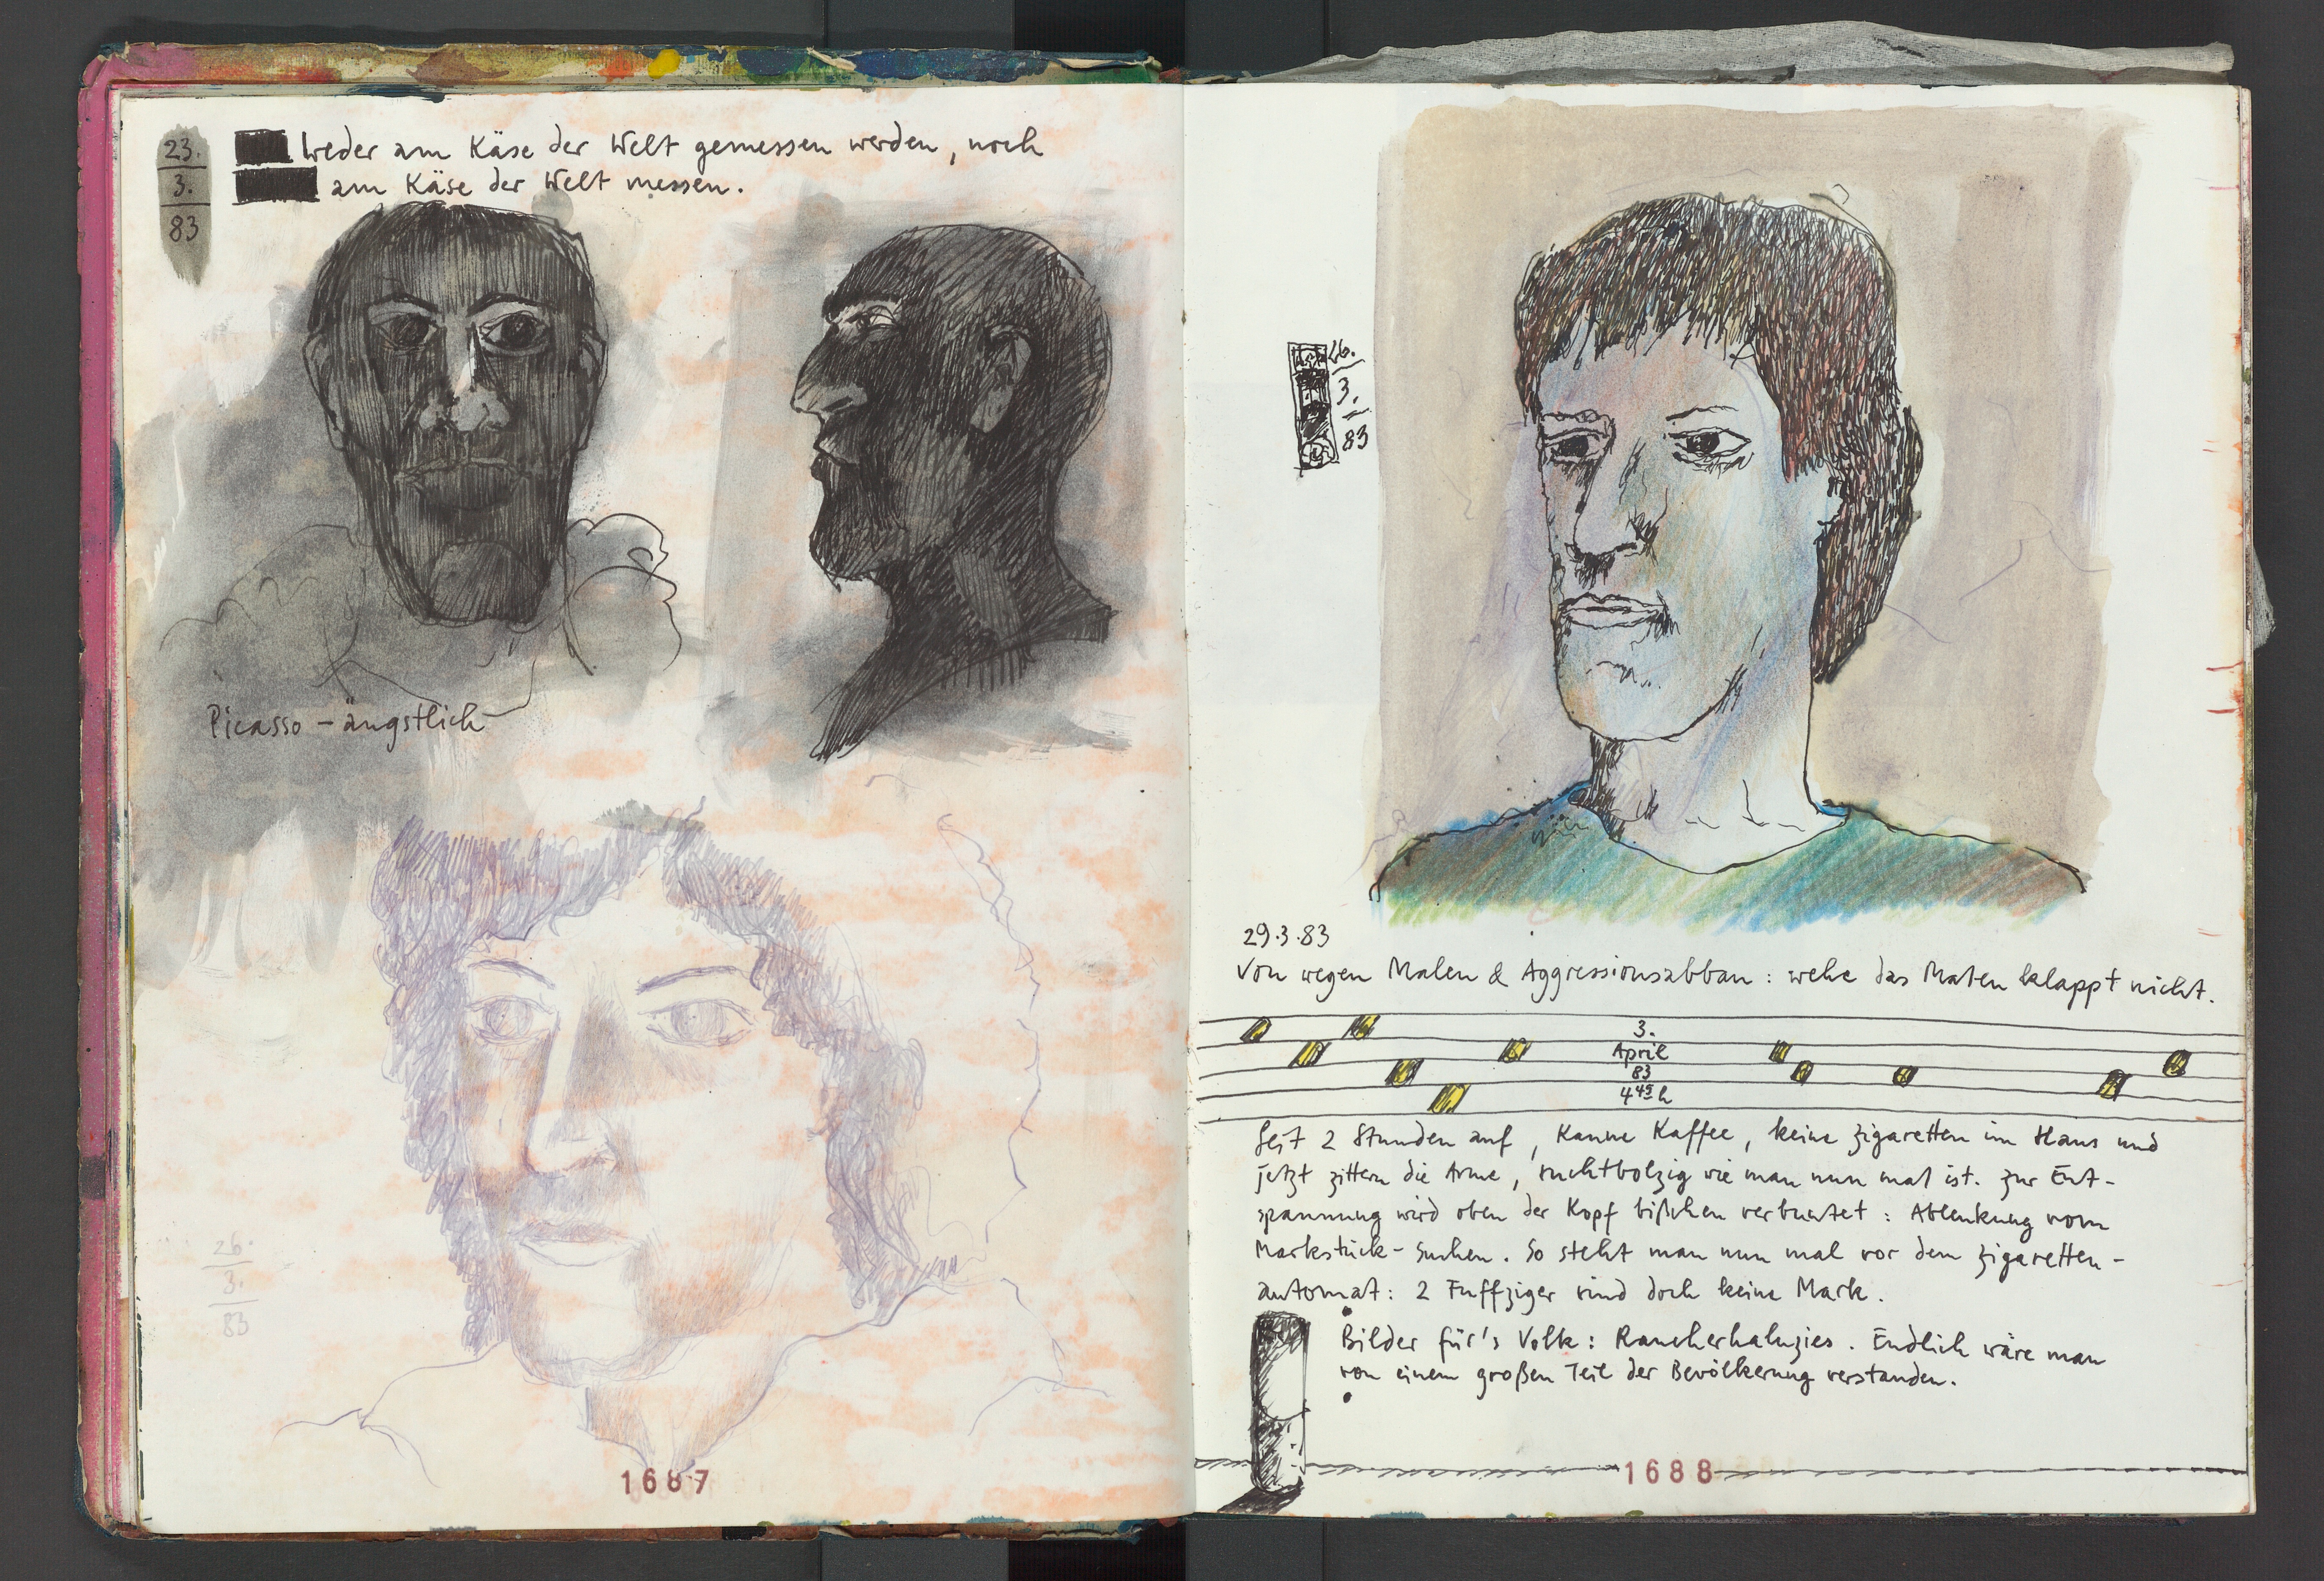 23.
3.
83
Weder am Käse der Welt gemessen werden, noch
am Käse der Welt messen.
Picasso – ängstlich
26.
3.
83
1687
26.
3.
83
29.3.83
Von wegen Malen & Aggressionsabbau: wehe das Malen klappt nicht.
3.
April
83
4 45 h
Seit 2 Stunden auf, Kanne Kaffee, keine Zigaretten im Haus und
jetzt zittern die Arme, suchtbolzig wie man nun mal ist. Zur Ent-
spannung wird oben der Kopf bißchen verbuntet: Ablenkung vom
Markstück-Suchen. So steht man nun mal vor dem Zigaretten-
automat: 2 Fuffziger sind doch keine Mark.
Bilder für's Volk: Raucherhaluzies. Endlich wäre man
von einem großen Teil der Bevölkerung verstanden.
1688